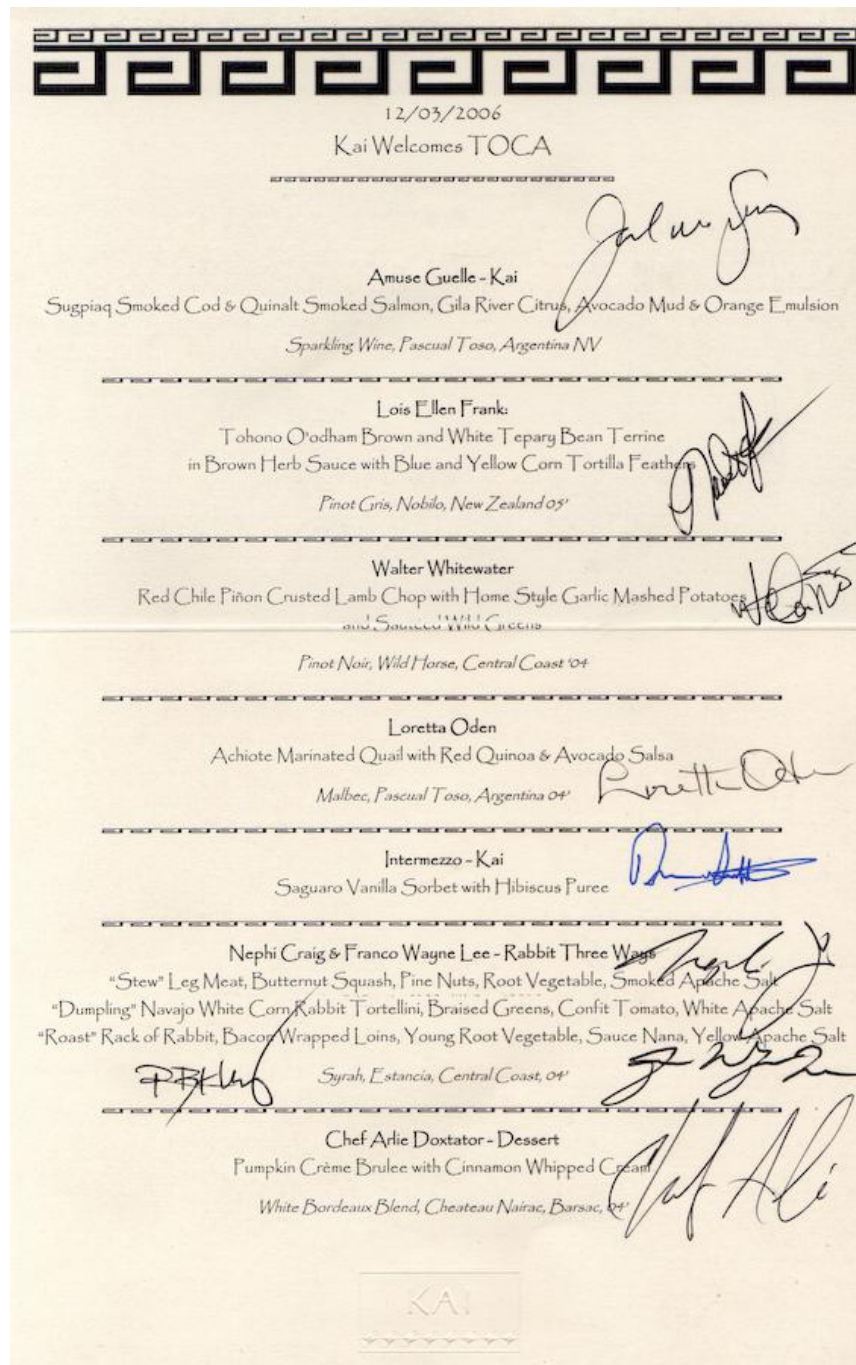 12/03/2006
Kai Welcomes TOCA
Amuse Guelle - Kai
Sugpiaq Smoked Cod & Quinalt Smoked Salmon, Gila River Citrus, Avocado Mud & Orange Emulsion
Sparkling Wine, Pascual Toso, Argentina NV
Lois Ellen Frank:
Tohono O'odham Brown and White Tepary Bean Terrine
in Brown Herb Sauce with Blue and Yellow Corn Tortilla Feathers
Pinot Gris, Nobilo, New Zealand 05'
Walter Whitewater
Red Chile Piñon Crusted Lamb Chop with Home Style Garlic Mashed Potatoes
and Sauteed Wild Greens
Pinot Noir, Wild Horse, Central Coast '04
Loretta Oden
Achiote Marinated Quail with Red Quinoa & Avocado Salsa
Malbec, Pascual Toso, Argentina 04'
Loretta Oden
Intermezzo - Kai
Saguaro Vanilla Sorbet with Hibiscus Puree
Nephi Craig & Franco Wayne Lee - Rabbit Three Ways
"Stew" Leg Meat, Butternut Squash, Pine Nuts, Root Vegetable, Smoked Apache Salt
"Dumpling" Navajo White Corn Rabbit Tortellini, Braised Greens, Confit Tomato, White Apache Salt
"Roast" Rack of Rabbit, Bacon Wrapped Loins, Young Root Vegetable, Sauce Nana, Yellow Apache Salt
Syrah, Estancia, Central Coast, 04'
Chef Arlie Doxtator - Dessert
Pumpkin Crème Brulee with Cinnamon Whipped Cream
White Bordeaux Blend, Cheateau Nairac, Barsac, 04'
KAI